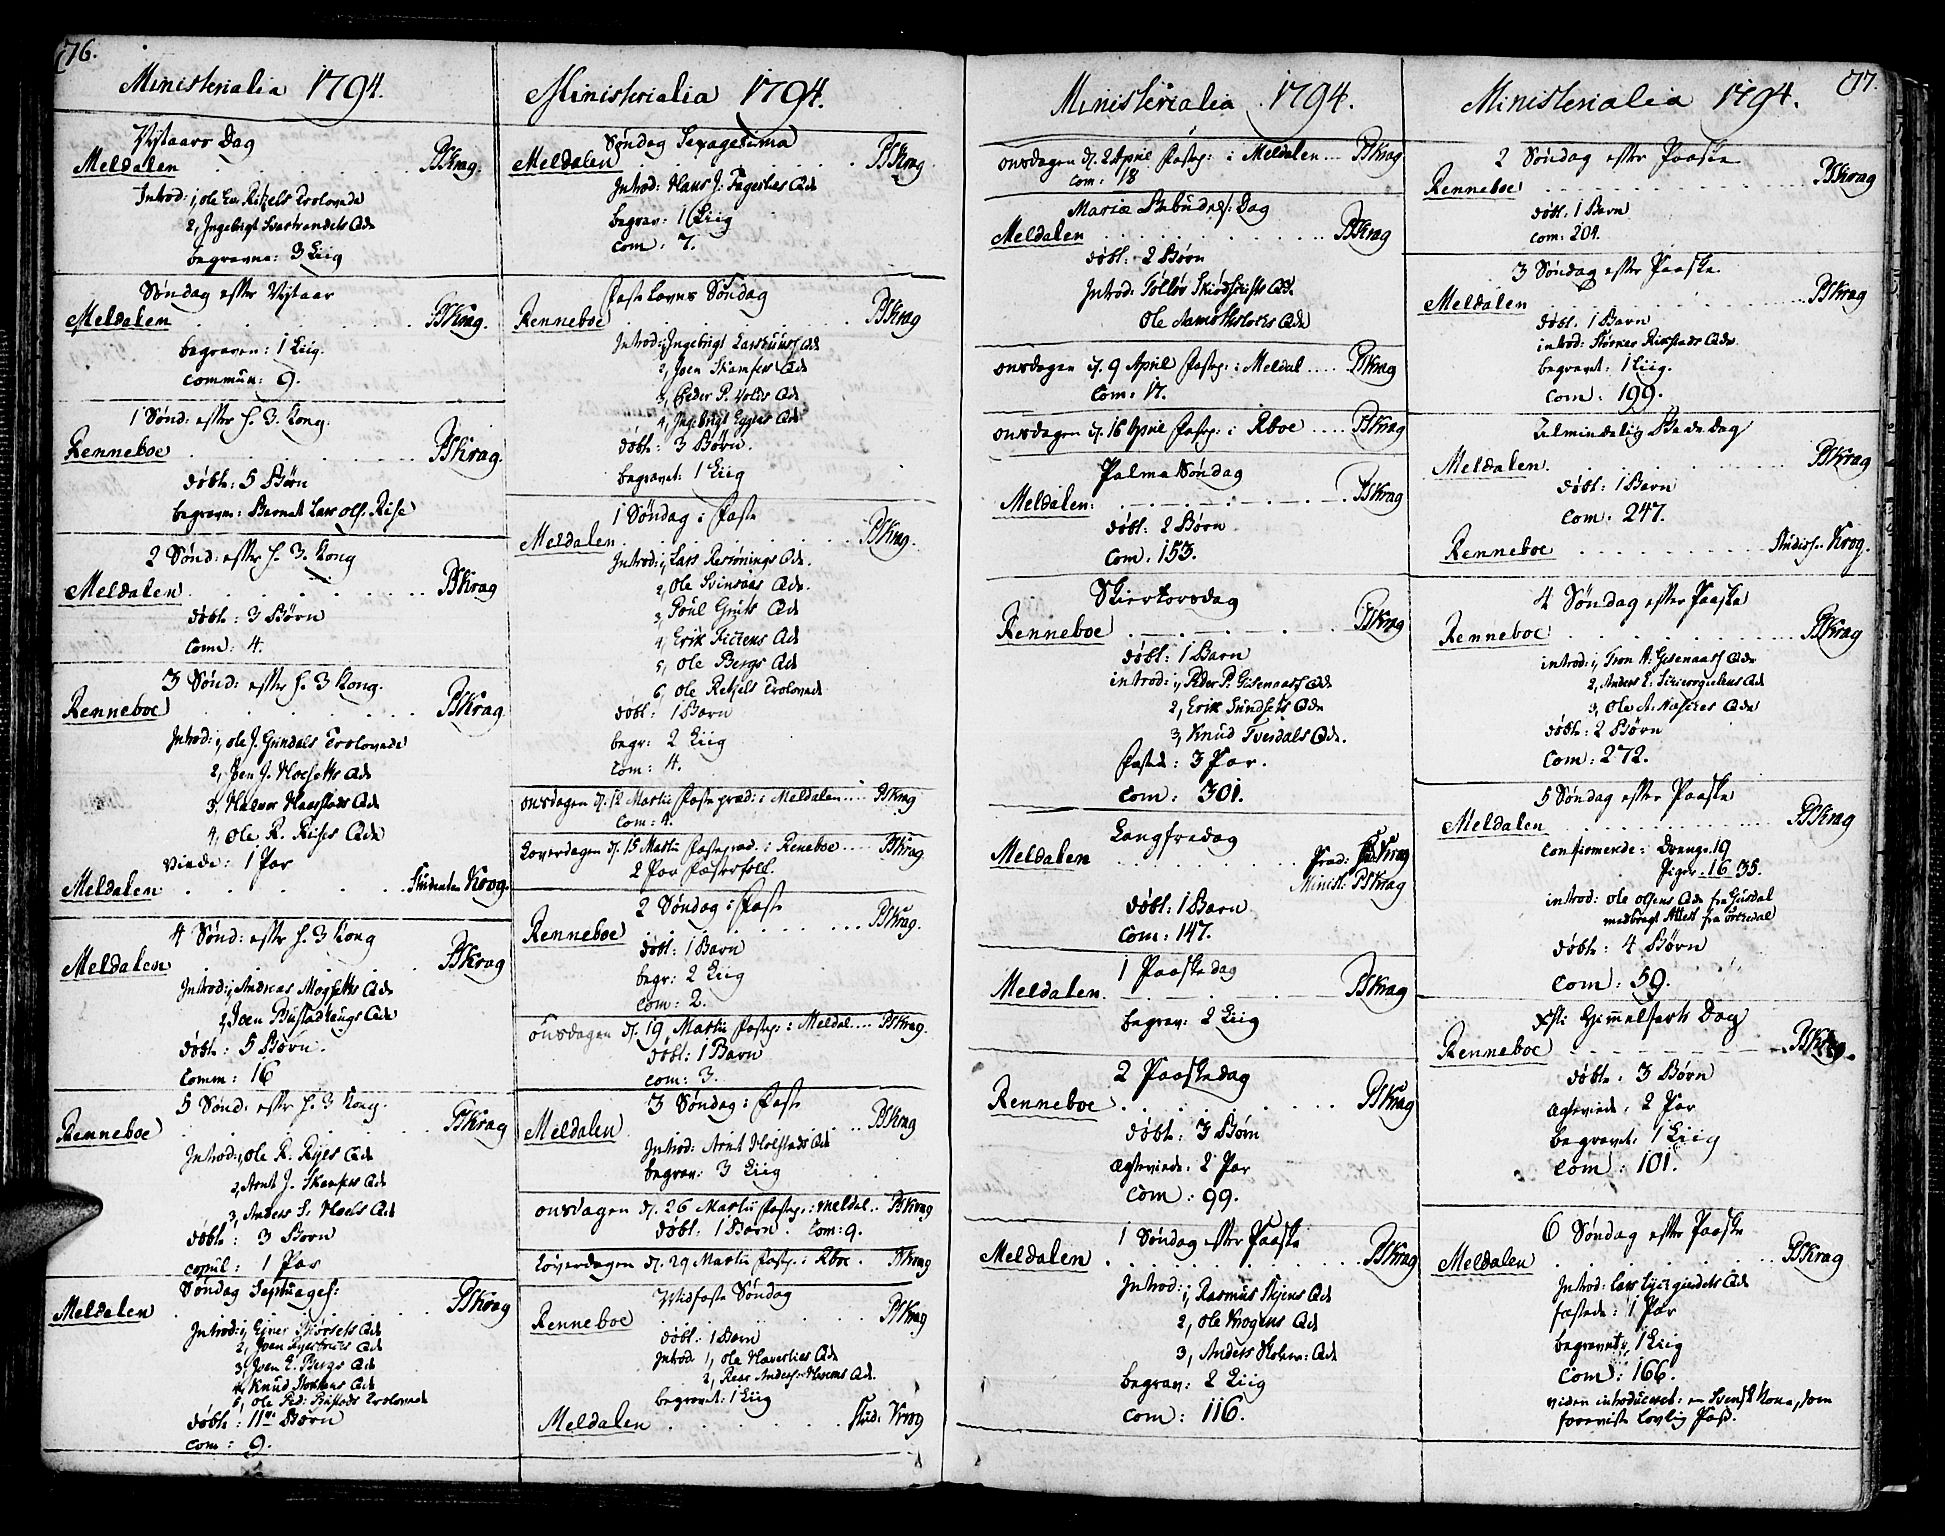 76.
Ministerialia 1794.
Nytaars Dag
Meldalen PSKrag.
Introd: 1, ole Retzels Trolovede
2, Ingebrigt Svartrandets Qde
begravne: 3 Liig
Søndag efter Nytaar
Meldalen PSKrag.
begraven: 1 Liig.
commun: 9.
1 Sønd: efter h. 3. Kong.
Renneboe PSKrag.
døbte: 5 Børn
begraven: Barnet Lars Ols. Rise
2 Sønd: efter h. 3. Kong
Meldalen PSKrag
døbte: 3 Børn
Com: 4.
3 Sønd: efter h. 3 Kong.
Renneboe PSKrag.
Introd: 1, ole J. Grindals Trolovede
2, Joen J. Hoesetts Qde
3, Halvor Haarstads Qde
4, ole R. Rises Qde
viede: 1 Par
Meldalen Studenten Krog.
4 Sønd: efter h. 3 Kong
Meldalen PSKrag
Introd: 1, Andreas Mosletts Qde
2, Joen Bustadhaugs Qde
døbte: 5 Børn.
Comm: 16
5 Sønd: efter h. 3 Kong.
Renneboe PSKrag
Introd: 1, ole R. Rises Qde
2, Arnt J. Skamfers Qde
3, Anders S. Hoels Qde
døbte: 3 Børn
copul: 1 Par
Søndag Septuages:
Meldalen PSKrag
Introd: 1, Ejner Biørsets Qde
2, Joen Qde
3, Joen E. Bergs Qde
4, Knud Qde
5, ole Ped: Bustads Trolovede
døbte: 11ve Børn
com: 9.
Ministerialia 1794.
Søndag Sexagesima
Meldalen PSKrag
Introd: Hans J. Fagerlies Qde
begrav: 1 Liig
Com: 7.
Fastelavns Søndag
Renneboe PSKrag
Introd: 1, Ingebrigt Qde
2, Joen Skamfers Qde
3, Peder P. Volds Qde
4, Ingebrigt Egges Qde
døbt: 3 Børn.
begravet: 1 Liig
1 Søndag i Faste
Meldalen PSKrag.
Introd: 1, Lars Resønings Qde.
2, Ole Svinsaas Qde.
3, Poul Gruts Qde
4, Erik Qde
5, ole Bergs Qde
6, ole Retzels Trolovede
døbt: 1 Barn
begr: 2 Liig
Com: 4.
onsdagen d. 12 Martii Fastepræd: i Meldalen PSKrag
Com: 4.
Løverdagen d. 15 Martii Fastepræd. i Reneboe PSKrag
2 Par Fæstefolk.
2 Søndag i Faste
Renneboe PSKrag.
døbt: 1 Barn
begr: 2 Liig
Com: 2.
onsdagen d. 19 Martii Fastep: i Meldal PSKrag.
døbt: 1 Barn
com: 3.
3 Søndag i Faste
Meldalen PSKrag
Introd: Arnt Holstads Qde
begrav: 3 Liig
onsdagen d. 26 Martii Fastep: i Meldal PSKrag
døbt: 1 Barn. Com: 9.
Løverdagen d. 29 Martii Fastep: i Rboe. PSKrag
Midfaste Søndag
Renneboe PSKrag
døbt: 1 Barn
Introd 1, ole Haverlies Qde
2, Qde.
begravet: 1 Liig
Meldalen Stud: Krog
Ministerialia 1794.
onsdagen d. 2 April Fastep: i Meldalen PSKrag
Com: 18
Mariæ Bebudels: Dag
Meldalen PSKrag
døbt: 2 Børn
Introd: Qde.
Ole Qde
onsdagen d. 9 April Fastep: i Meldal PSKrag
Com: 17.
onsdagen d. 16 April Fastep: i Rboe PSKrag
Palma Søndag
Meldalen: PSKrag
døbt: 2 Børn
Com: 153.
Skiertorsdag
Renneboe PSKrag
døbt: 1 Barn
introd: 1, Peder P. Gisenaass Qde
2, Erik Sundsets Qde
3, Knud Tverdals Qde.
Fæstede: 3 Par.
Com: 301.
Langfredag
Meldalen Præd: Krag
Minist: PSKrag
døbt: 1 Barn
Com: 147.
1 Paaskedag
Meldalen. PSKrag
begrav: 2 Liig
2 Paaskedag
Renneboe PSKrag
døbt: 3 Børn
Ægteviede: 2 Par
Com: 99.
1 Søndag efter Paaske
Meldalen PSKrag
Introd: 1, Rasmus Qde
2, ole Krogens Qde
3, Anders Qde
begrav: 2 Liig
Com: 116.
77.
Ministerialia 1794.
2 Søndag efter Paaske
Renneboe PSKrag
døbt: 1 Barn
com: 204.
3 Søndag efter Paaske.
Meldalen PSKrag
døbt. 1 Barn
introd: Størker Rikstads Qde
begravet: 1 Liig.
Com: 199.
Almindelig Bededag
Meldalen. PSKrag
døbt: 1 Barn
Com: 247.
Renneboe Krog.
4 Søndag efter Paaske
Renneboe PSKrag
introd: 1, Tron A: Gisenaass Qde
2, Anders E: Qde
3, Ole A. Qde
døbt: 2 Børn
Com: 272.
5 Søndag efter Paaske
Meldalen PSKrag
Confirmerede: Drenge. 19
Piger. 16. 35.
introd: ole olsens Qde fra
medbragt Attest fra
døbt: 4 Børn
Com: 59.
Xsti Himmelfarts Dag
Renneboe PSKrag.
døbte: 3 Børn
Ægteviede. 2 Par
begravet: 1 Liig
Com: 101.
6 Søndag efter Paaske
Meldalen PSKrag
Introd: Lars Qde
fæstede: 1 Par
begravet: 1 Liig
Com: 166.
viden introduceret: en Svensk Kone, som
foreviste lovlig Pass.